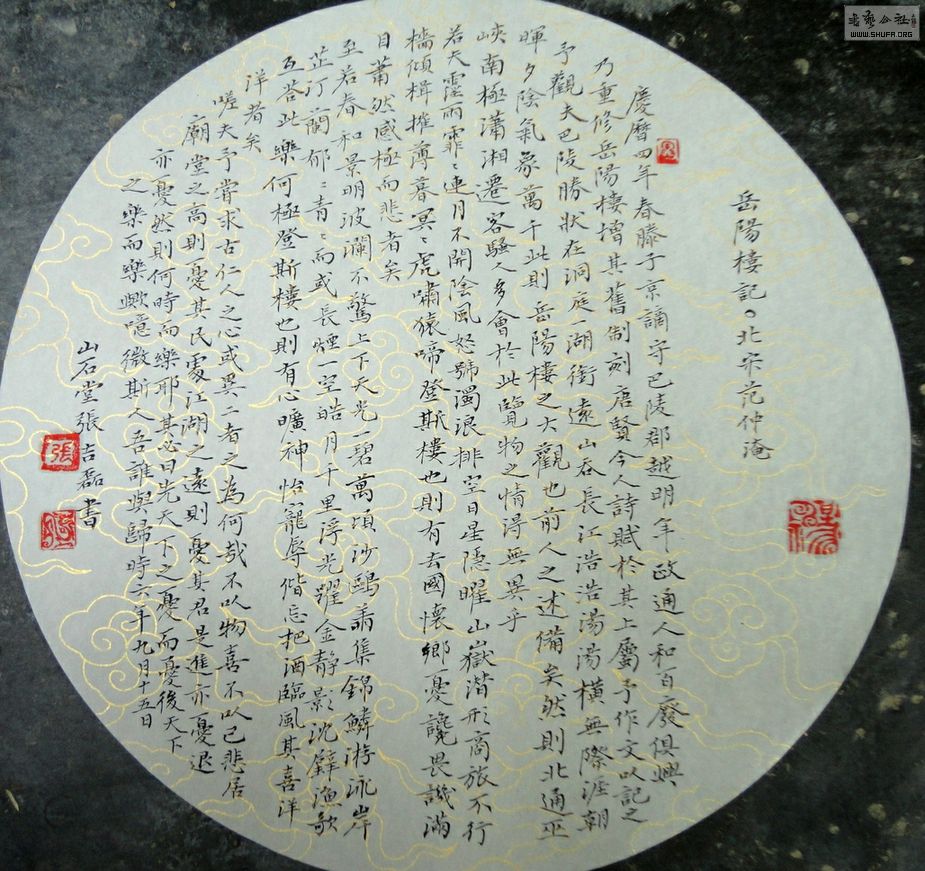 岳陽樓記。北宋范仲淹
慶曆四年春滕子京謫守巴陵郡越明年政通人和百廢俱興
乃重修岳陽樓增其舊制刻唐賢今人詩賦於其上屬予作文以記之
予觀夫巴陵勝狀在洞庭一湖銜遠山吞長江浩浩湯湯橫無際涯朝
暉夕陰氣象萬千此則岳陽樓之大觀也前人之述備矣然則北通巫
峽南極瀟湘遷客騷人多會於此覽物之情得無異乎
若夫霪雨霏〻連月不開陰風怒號濁浪排空日星隱曜山嶽潛形商旅不行
檣傾楫摧薄暮冥〻虎嘯猿啼登斯樓也則有去國懷鄉憂讒畏譏滿
目蕭然感極而悲者矣
至若春和景明波瀾不驚上下天光一碧萬頃沙鷗翔集錦鱗游泳岸
芷汀蘭郁〻青〻而或長煙一空皓月千里浮光躍金靜影沈璧漁歌
互答此樂何極登斯樓也則有心曠神怡寵辱偕忘把酒臨風其喜洋
洋者矣
嗟夫予嘗求古仁人之心或異二者之為何哉不以物喜不以己悲居
廟堂之高則憂其民處江湖之遠則憂其君是進亦憂退
亦憂然則何時而樂耶其必曰先天下之憂而憂後天下
之樂而樂歟噫微斯人吾誰與歸時六年九月十五日
山石堂張吉磊書
張
書藝公社
WWW.SHUFA.ORG